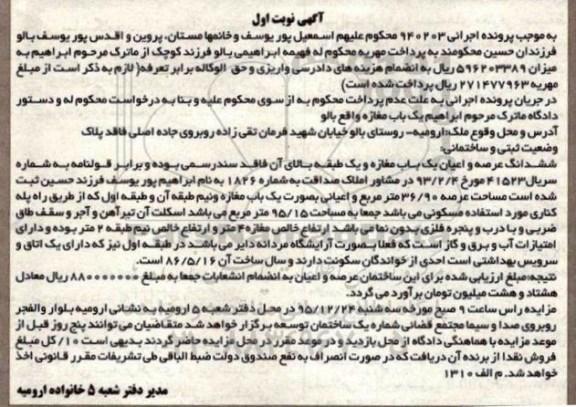 آگهی نوبت اول
به موجب پرونده اجرائی ۹۴۰۲۰۳ محکوم علیهم اسمعیل پور یوسف و خانمها مستان، پروین و اقدس پور یوسف بالو
فرزندان حسین محکومند به پرداخت مهریه محکوم له فهیمه ابراهیمی بالو فرزند کوچک از ماترک مرحوم ابراهیم به
میزان ۵۹۶۲۰۳۳۸۹ ریال به انضمام هزینه های دادرسی واریزی و حق الوکاله برابر تعرفه( لازم به ذکر است از مبلغ
مهریه ۲۷۱۴۷۷۹۶۳ ریال پرداخت شده است)
در جریان پرونده اجرایی به علت عدم پرداخت محکوم به از سوی محکوم علیه و بنا به درخواست محکوم له و دستور
دادگاه ماترک مرحوم ابراهیم یک باب مغازه واقع بالو
آدرس و محل وقوع ملک:ارومیه- روستای بالو خیابان شهید فرمان تقی زاده روبروی جاده اصلی فاقد پلاک
وضعیت ثبتی و ساختمانی:
ششدانگ عرصه و اعیان یک باب مغازه و یک طبقه بالای آن فاقد سند رسمی بوده و برابر قولنامه به شماره
سریال ۴۱۵۲۳ مورخ ۹۳/۲/۴ در مشاور املاک صداقت به شماره ۱۸۲۶ به نام ابراهیم پور یوسف فرزند حسین ثبت
شده است مساحت عرصه ۳۶/۹۰ متر مربع و اعیانی بصورت یک باب مغازه ونیم طبقه آن و طبقه اول که از طریق راه پله
کناری مورد استفاده مسکونی می باشد جمعا به مساحت ۹۵/۱۵ متر مربع می باشد اسکلت آن تیرآهن و آجر و سقف طاق
ضربی و با درب و پنجره فلزی بدون نما می باشد ارتفاع خالص مغازه ۴ متر و ارتفاع خالص نیم طبقه ۲ متر بوده و دارای
امتیازات آب و برق و گاز است که فعلا بصورت آرایشگاه مردانه دایر می باشد در طبقه اول نیز که دارای یک اتاق و
سرویس بهداشتی است احدی از خواندگان سکونت دارند و سال ساخت آن ۸۶/۵/۱۶ است.
نتیجه:مبلغ ارزیابی شده برای این ساختمان عرصه و اعیان به انضمام انشعابات جمعا به مبلغ ۸۸۰۰۰۰۰۰۰ ریال معادل
هشتاد و هشت میلیون تومان برآورد می گردد.
مزایده راس ساعت ۹ صبح مورخه سه شنبه ۹۵/۱۲/۲۴ در محل دفتر شعبه ۵ ارومیه به نشانی ارومیه بلوار والفجر
روبروی صدا و سیما مجتمع قضائی شماره یک ساختمان توسعه برگزار خواهد شد متقاضیان می توانند پنج روز قبل از
موعد مزایده با هماهنگی دادگاه از محل بازدید و در موعد مقرر در محل مزایده حاضر گردند بدیهی است ۱۰٪ کل مبلغ
فروش نقدا از برنده آن دریافت که در صورت انصراف به نفع صندوق دولت ضبط الباقی طی تشریفات مقرر قانونی اخذ
خواهد شد. م الف ۱۳۱۰
مدیر دفتر شعبه ۵ خانواده ارومیه